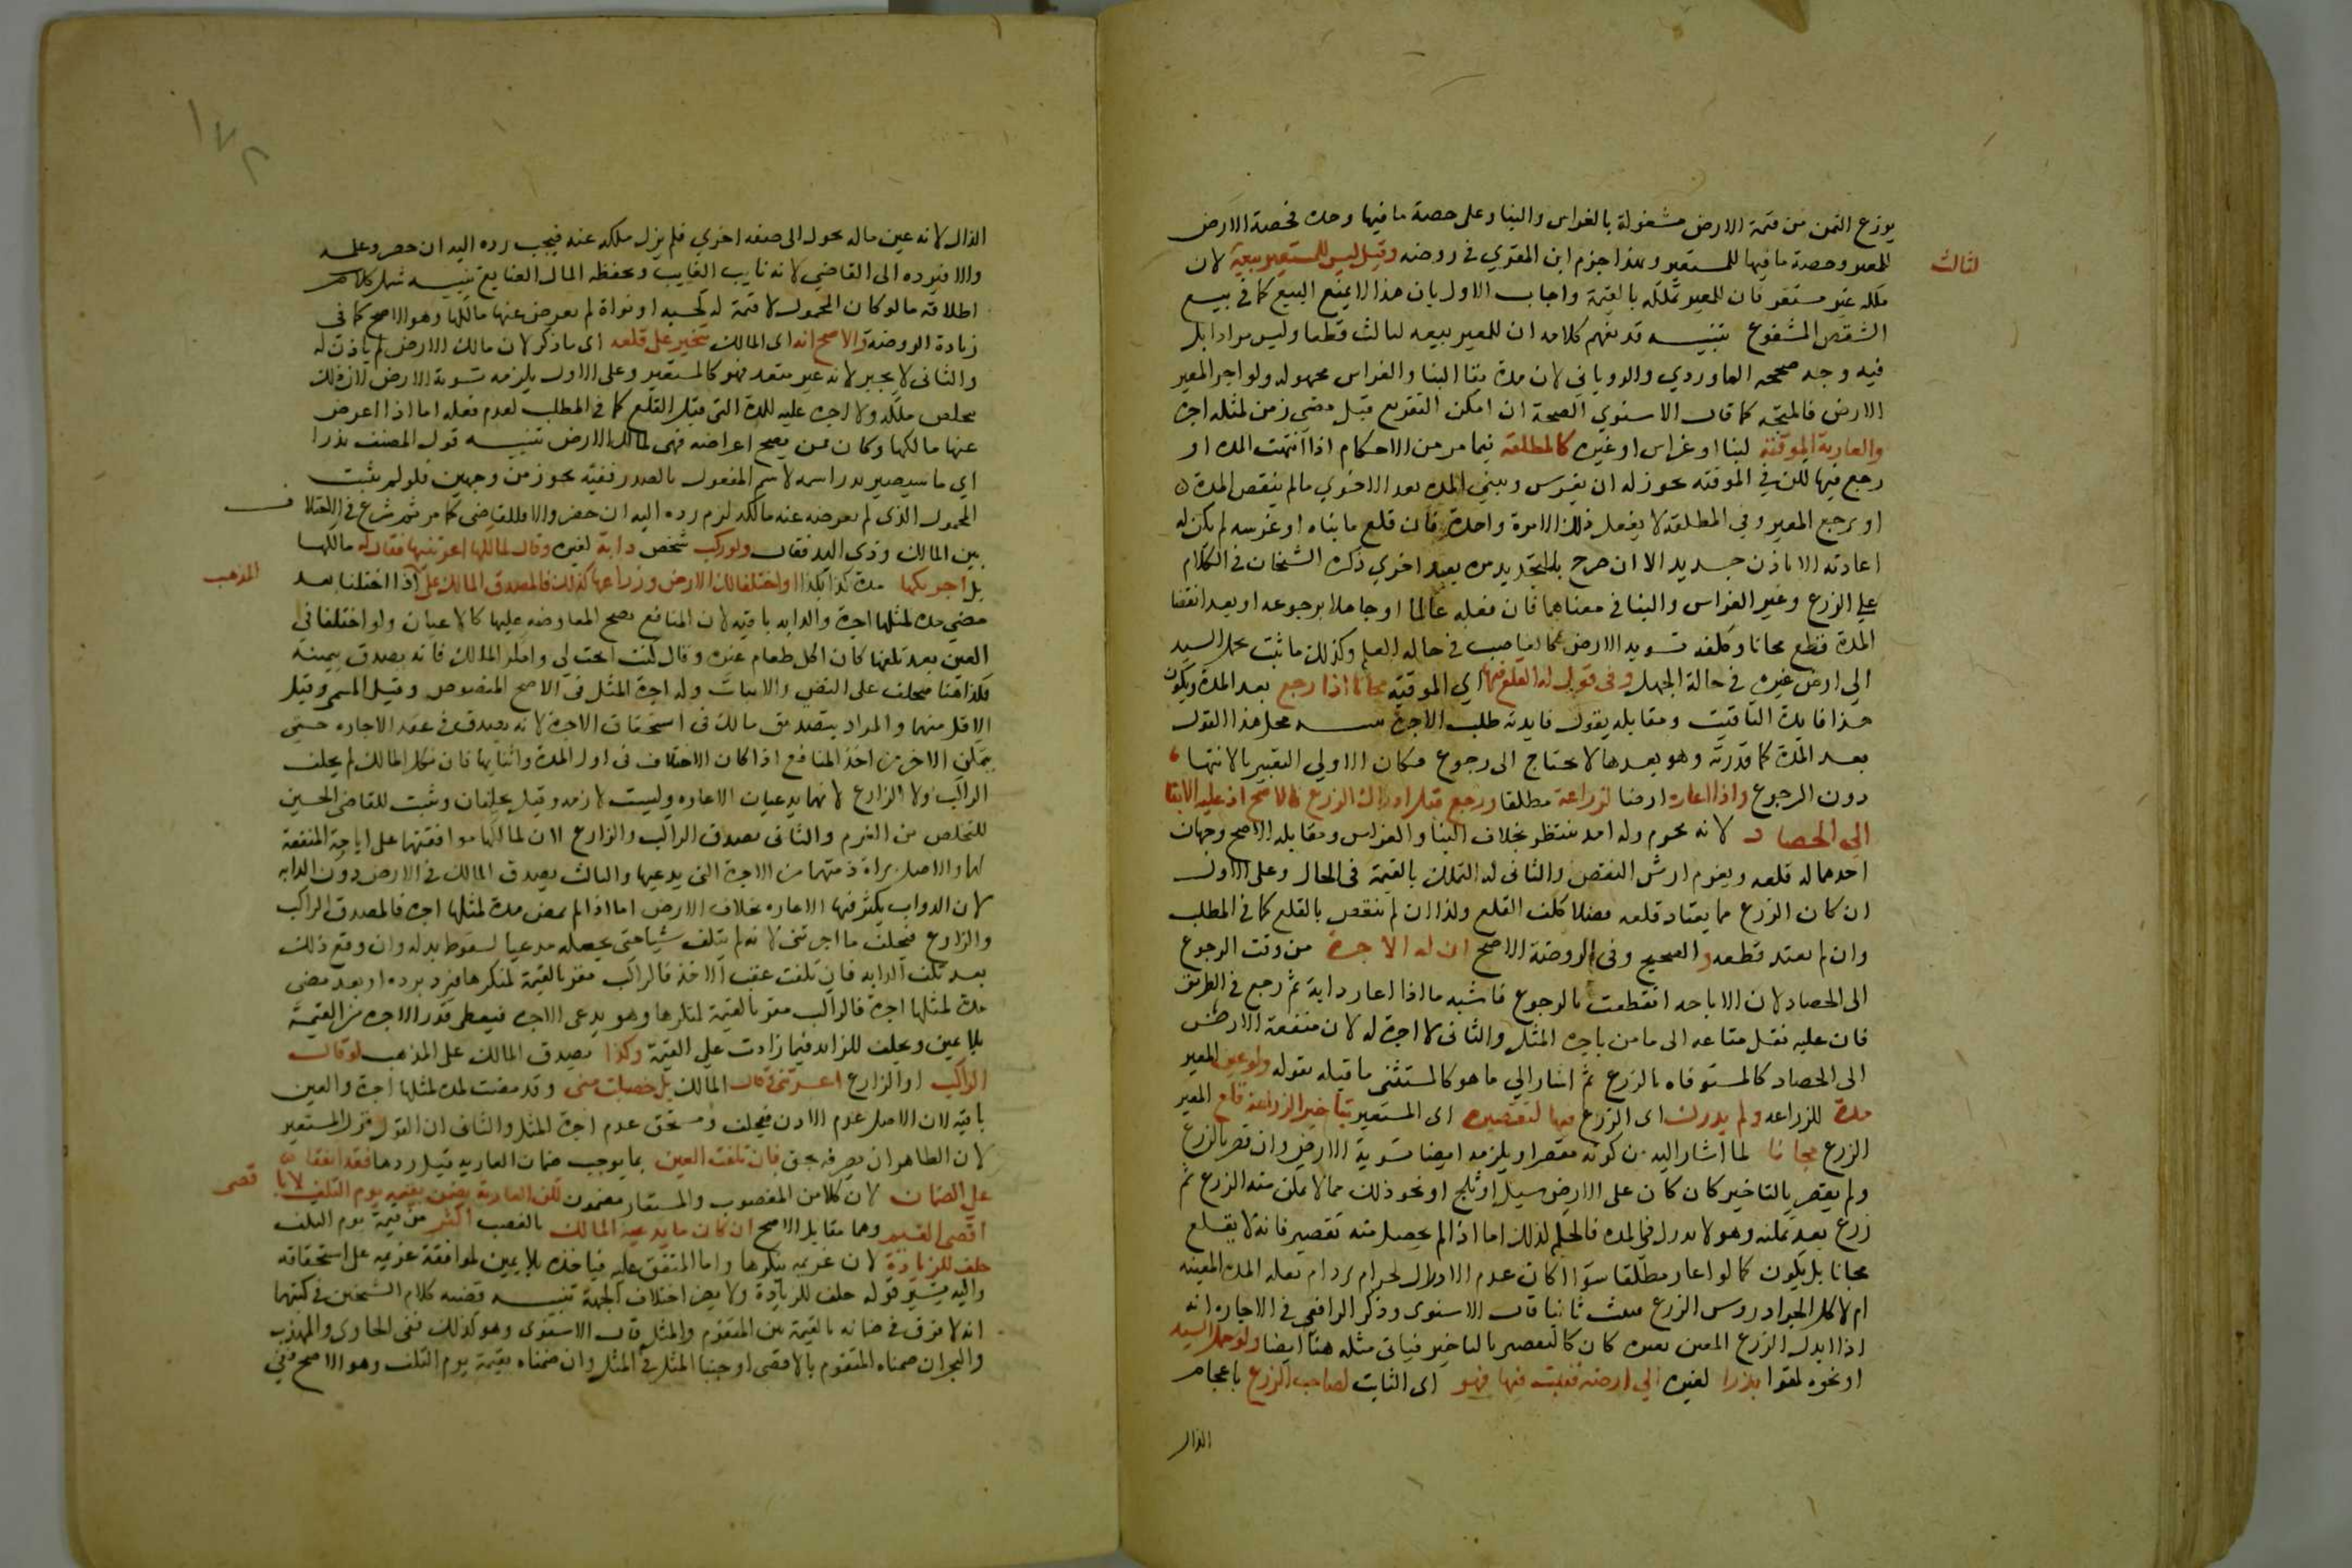 يوزع الثمن من قيمة الارض مشغولة بالغراس والبنا وعلى حصة ما فيها وحده فحصة الارض
للمعير وحصة ما فيها للمستعير وبهذا جزم ابن المقري في روضه وقيل ليس للمستعير بيعه لان
لثالث
ملكه غير مستقر فان للمعير تملكه بالقيمة واجاب الاول بان هذا لا يمنع البيع كما في بيع
الشقص المشفوع تنبيه قد يفهم كلامه ان للمعير بيعه لثالث قطعا وليس مرادا بل
فيه وجه صححه الماوردي والروياني لان مدة بقا البنا والغراس مجهوله ولو اجر المعير
الارض فالمتجه كما قال الاسنوي الصحة ان امكن التفريع قبل مضي زمن لمثله اجرة
والعارية الموقتة لبنا او غراس او غيره كالمطلقة فيما مر من الاحكام اذا انتهت المدة او
رجع فيها لكن في الموقته يجوز له ان يغرس ويبني المدة بعد الاخري ما لم ينقض المدة
او يرجع المعير وفي المطلقة لا يفعل ذلك الا مرة واحدة فان قلع ما بناه او غرسه لم يكن له
اعادته الا باذن جديد الا ان صرح بالتجديد مرة بعد اخري ذكره الشيخان في الكلام
علي الزرع وغير الغراس والبنا في معناهما فان فعله عالما او جاهلا برجوعه او بعد انقضا
المدة قطع مجانا وكلفه تسويد الارض كالغاصب في حالة العلم وكذلك ما نبت بحمل السيد
الي ارض غيره في حالة الجهل وفي قول له القلع فيها اي الموقته مجانا اذا رجع بعد المدة ويكون
هذا فايدة التاقيت ومقابله يقول فايدته طلب الاجرة محل هذا القول
بعد المدة كما قدرته وهو بعدها لا يحتاج الى رجوع فكان الاولي التعبير بالانتها
دون الرجوع واذا اعاره ارضا لزراعة مطلقا ورجع قبل ادراك الزرع فالاصح ان عليه الابقا
الي الحصاد لانه محترم وله امد ينتظر بخلاف البنا والغراس ومقابله الاصح وجهان
احدهما له قلعه ويغرم ارش النقص والثاني له التملك بالقيمة في الحال وعلى الاول
ان كان الزرع مما يعتاد قلعه فصيلا كلف القلع وكذا ان لم ينقص بالقلع كما في المطلب
وان لم يعتد قطعه والصحيح وفي الروضة الاصح ان له الاجرة من وقت الرجوع
الى الحصاد لان الاباحه انقطعت بالرجوع فاشبه ما اذا اعار دابة ثم رجع في الطريق
فان عليه نقل متاعه الى مامن باجرة المثل والثاني لا اجرة له لان منفعة الارض
الى الحصاد كالمستوفاه بالزرع ثم اشار الي ما هو كالمستثنى ما قبله بقوله ولو عين المعير
مدة للزراعه ولم يدرك اى الزرع فيها لتقصيره اى المستعير بتاخير الزراعة قلع المعير
الزرع مجانا لما اشار اليه من كونه مقصرا ويلزمه ايضا تسوية الارض وان قصر بالزرع
ولم يقصر بالتاخير كان كان على الارض سيل او ثلج او نحو ذلك مما لا يمكن منه الزرع ثم
زرع بعد تمكنه وهو لا يدرك في المدة فالحكم كذلك اما اذا لم يحصل منه تقصير فانه لا يقلع
مجانا بل يكون كما لو اعار مطلقا سوا اكان عدم الادراك لحر ام برد ام بعله المدة المعينه
ام لاكل الجراد روس الزرع فنبت ثانيا قال الاسنوى وذكر الرافعي في الاجاره انه
اذا ابدل الزرع المعين بغيره كان كالتقصير بالتاخير فياتي مثله هنا ايضا ولو حمل السيد
او نحوه كهوا بذرا لغيره الي ارضه فنبت فيها فهو اى النابت لصاحب البذر باعجام
الذال
الذال لانه عين ماله تحول الى صفه اخري فلم يزل ملكه عنه فيجب رده اليه ان حضر وعلمه
والا فيرده الى القاضي لانه نايب الغايب ويحفظه المال الضايع تنبيه شمل كلامه
اطلاقه ما لو كان المحمول لا قيمة له كحبه او نواة لم يعرض عنها مالكها وهو الاصح كما في
زيادة الروضة والاصح انه اى المالك يجبر على قلعه اى ما ذكر لان مالك الارض لم ياذن له
والثاني لا يجبر لانه غير متعد فهو كالمستعير وعلى الاول يلزمه تسوية الارض لان ذلك
يخلص ملكه ولا اجرة عليه للمدة التي قبل القلع كما في المطلب لعدم فعله اما اذا اعرض
عنها مالكها وكان ممن يصح اعراضه فهي لمالك الارض تنبيه قول المصنف بذرا
اي ما سيصير بذرا سمه لاسم المفعول بالمصدر ففيه تجوز من وجهين فلو لم ينبت
المحمول الذى لم يعرض عنه مالكه لزم رده اليه ان حضر والا فللقاضي كما مر ثم شرع في الاختلاف
بين المالك وذى اليد فقال ولو ركب شخص دابة لغيره وقال لمالكها اعرتنيها فقال له مالكها
بل اجرتكها مدة كذا بكذا او اختلف مالك الارض وزراعها كذلك فالمصدق المالك على اذا اختلفا بعد
المذهب
مضي مدة لمثلها اجرة والدابه باقيه لان المنافع تصح المعاوضه عليها كالاعيان ولو اختلفا في
العين بعد تلفها كان اكل طعام غيره وقال كنت ابحت لي وانكر المالك فانه يصدق بيمينه
فكذا هنا فيحلف على النفي والاثبات وله اجرة المثل في الاصح المنصوص وقيل المسمى وقيل
الاقل منهما والمراد بتصديق مالك في استحقاق الاجرة لا انه يصدق في عقد الاجاره حتى
يتمكن الاخر من اخذ المنافع اذا كان الاختلاف في اول المدة واثنايها فان نكل المالك لم يحلف
الراكب ولا الزارع لانهما يدعيان الاعاره وليست لازمه وقيل يحلفان ونسب للقاضي الحسين
للتخلص من الغرم والثاني يصدق الراكب والزارع لان المالك موافقهما على اباحة المنفعة
لهما والاصل براة ذمتهما من الاجرة التي يدعيها والثالث يصدق المالك في الارض دون الدابه
لان الدواب يكثر فيها الاعاره بخلاف الارض اما اذا لم يمض مدة لمثلها اجرة فالمصدق الراكب
والزارع فيحلف ما اجرتني لانه لم يتلف شيا حتى يجعله مدعيا لسقوط بدله وان وقع ذلك
بعد تلف الدابه فان تلفت عقب الاخذ فالراكب مقر بالقيمة لمنكرها فيرد برده او بعد مضي
مدة لمثلها اجرة فالراكب مقر بالقيمة لمنكرها وهو يدعي الاجرة فيعطى قدر الاجرة من القيمة
بلا يمين ويحلف للزايد فيما زادت على القيمة وكذا يصدق المالك على المذهب لو قال
الراكب او الزارع اعرتني وقال المالك بل غصبت مني وقد مضت مدة لمثلها اجرة والعين
باقيه لان الاصل عدم الاذن فيحلف ويستحق عدم اجرة المثل والثاني ان القول قول المستعير
لان الظاهر ان تصرفه بحق فان تلفت العين بما يوجب ضمان العاريه قبل ردها فقد اتفقا
على الضمان لان كلا من المغصوب والمستعار مضمون لكن العارية يضمن بقيمة يوم التلف لا با
قصى
اقصى القيم وهما مقابل الاصح ان كان ما يدعيه المالك بالغصب اكثر من قيمة يوم التلف
حلف للزيادة لان غريمه ينكرها واما المتفق عليه فياخذه بلا يمين لموافقة غريمه على استحقاقه
واليه يشير قوله حلف للزيادة ولا يضر اختلاف الجهة تنبيه قضيه كلام الشيخين في كتبهما
انه لا فرق في ضمانه بالقيمة بين المتقوم والمثل قال الاسنوى وهو كذلك ففي الحاوى والمهذب
والبحر ان ضمناه المتقوم بالاقصى اوجبنا المثل في المثل وان ضمناه بقيمة يوم التلف وهو الاصح ففي